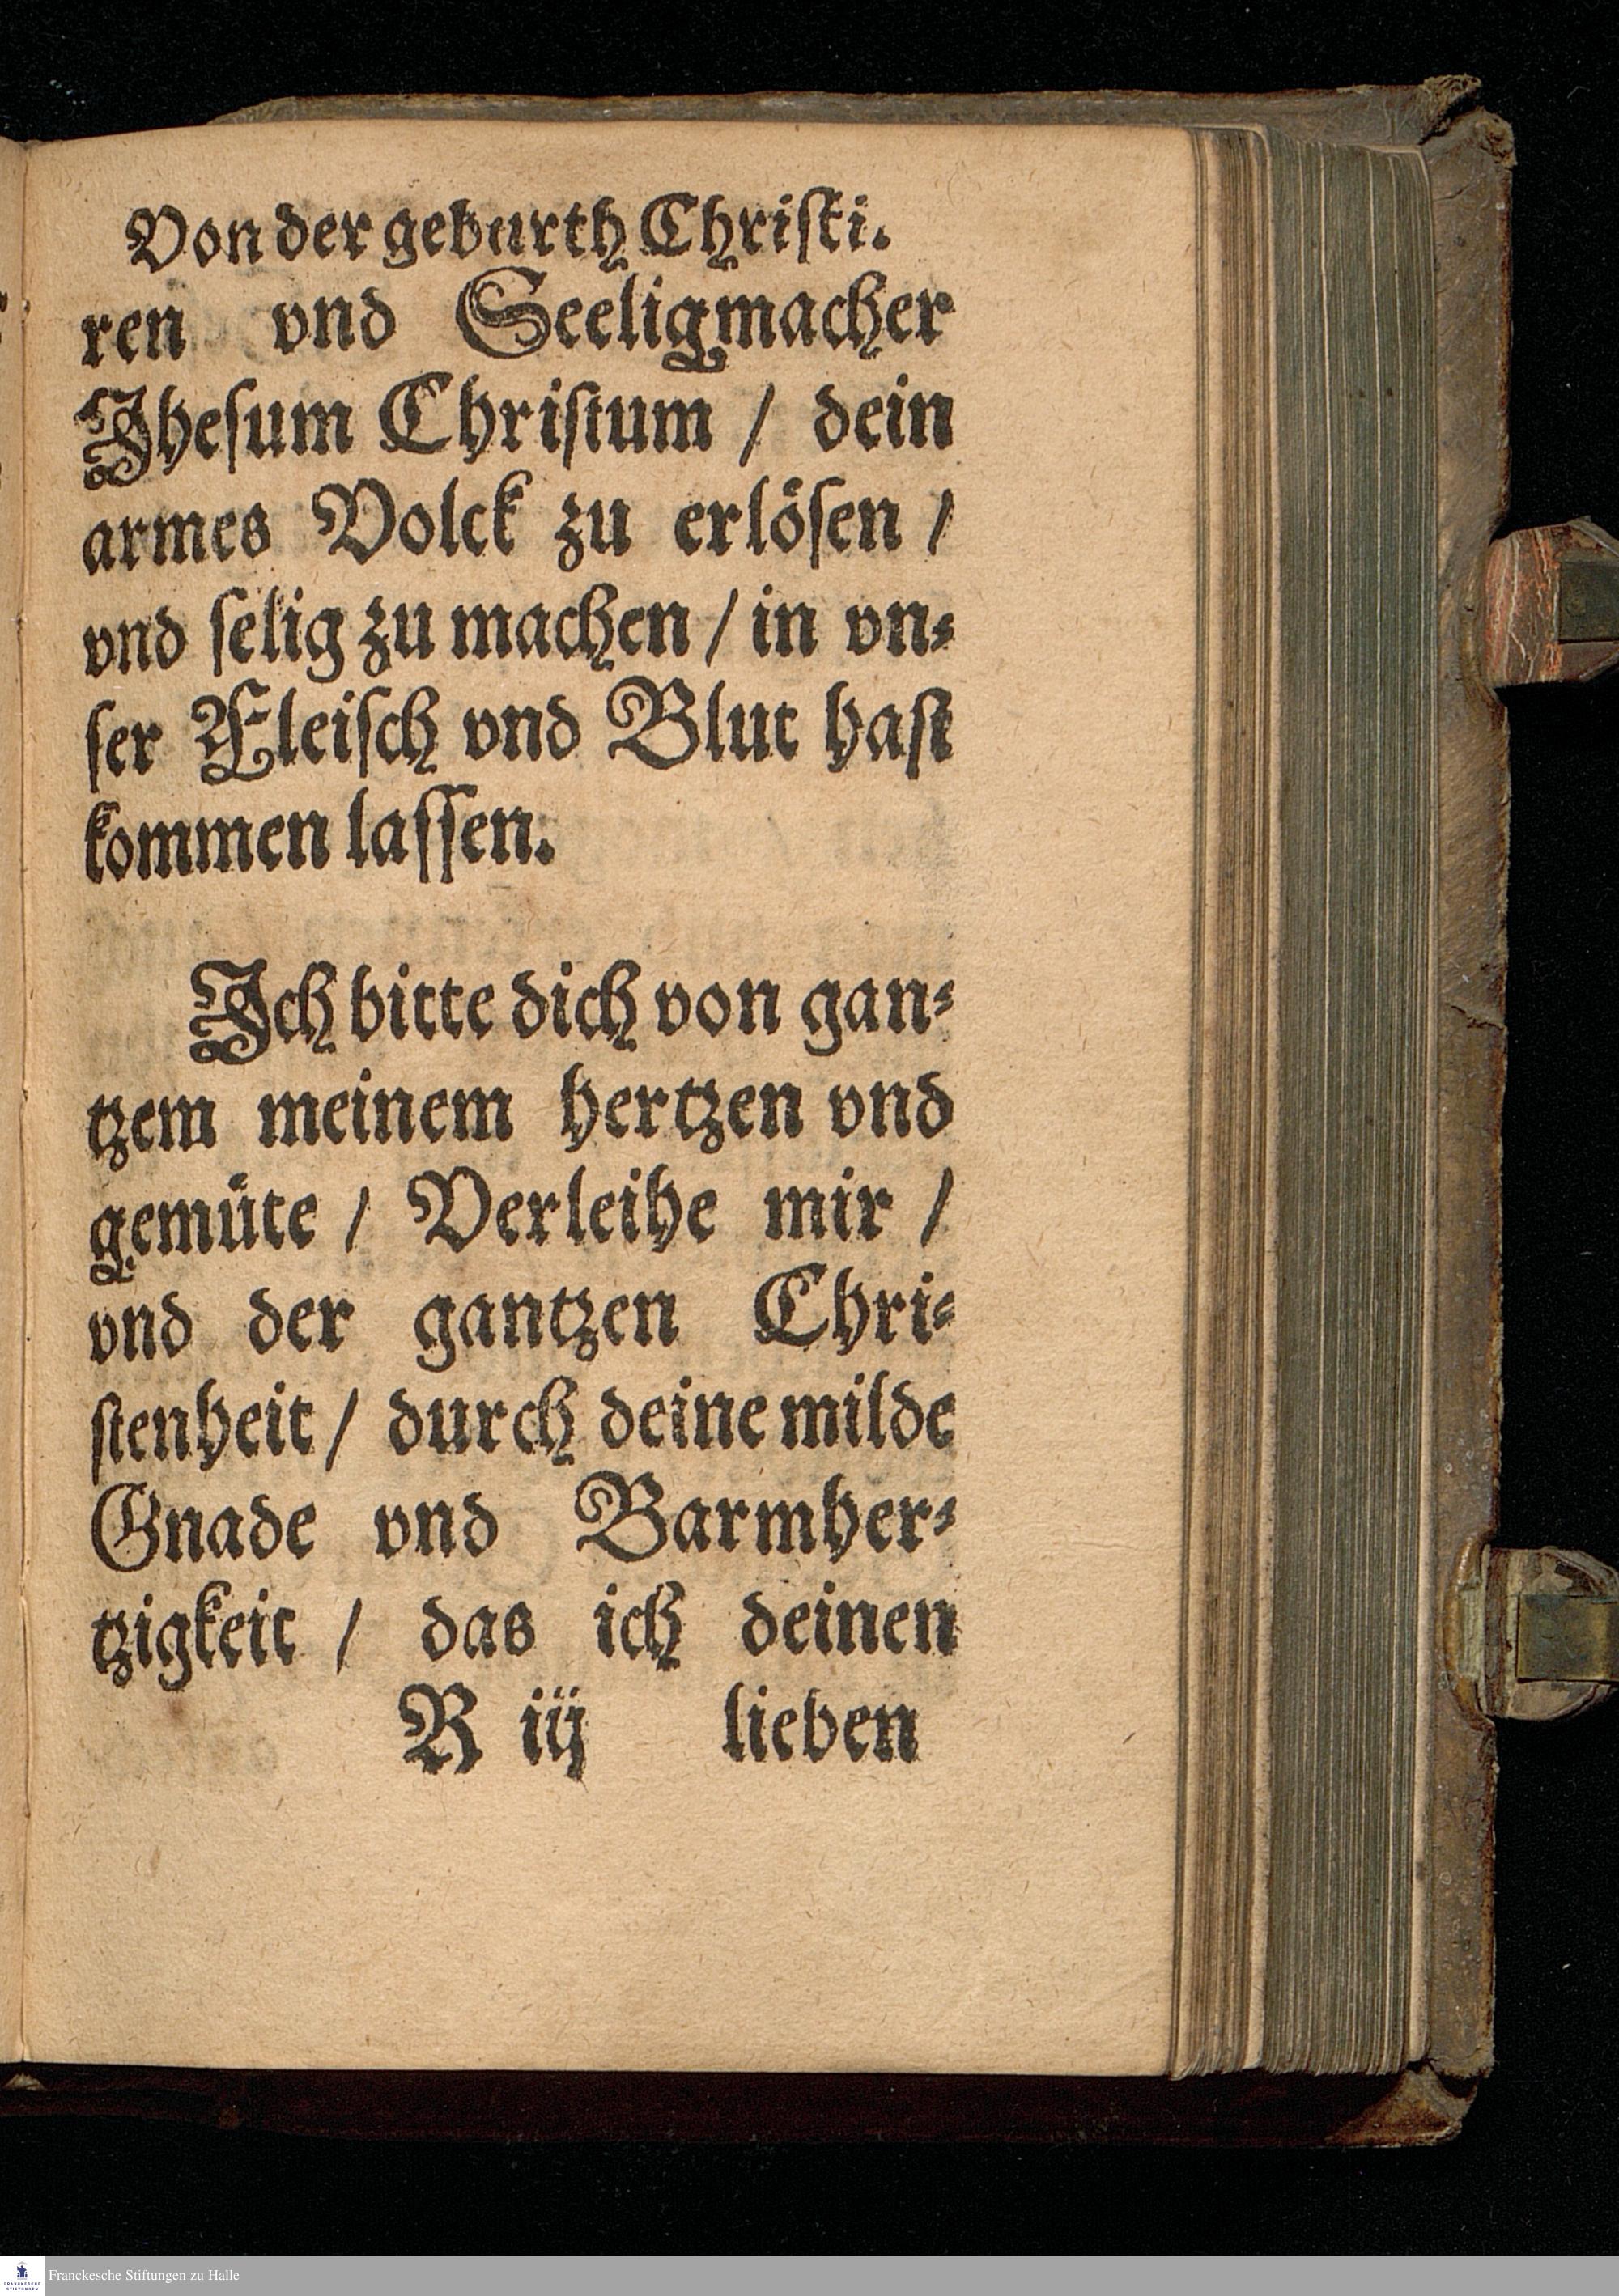 Von der geburth Chriſti.
ren vnd Seeligmacher
Jheſum Chriſtum / dein
armes Volck zu erlöſen /
vnd ſelig zu machen / in vn⸗
ſer Fleiſch vnd Blut haſt
kommen laſſen.
Jch bitte dich von gan⸗
tzem meinem hertzen vnd
gemüte / Verleihe mir /
vnd der gantzen Chri⸗
ſtenheit / durch deine milde
Gnade vnd Barmher⸗
tzigkeit / das ich deinen
R iij lieben
Franckesche Stiftungen zu Halle
FRANCKESCHE
STIFTUNGEN